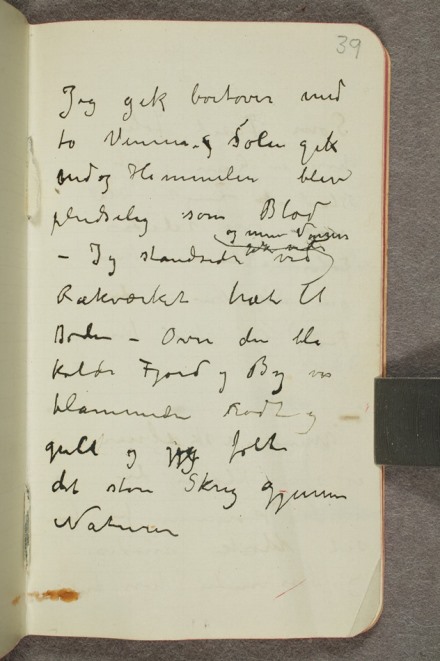 39
Jeg gik bortover med
to Venner og Solen gik
ned og Himmelen blev
pludselig som Blod
og mine Venner
gik videre
– Jeg standsede ved
Rækværket træt til
Døden – Over den blå
kolde Fjord og By var
flammende rødt og
gult og jeg følte
det store Skrig gjennem
Naturen